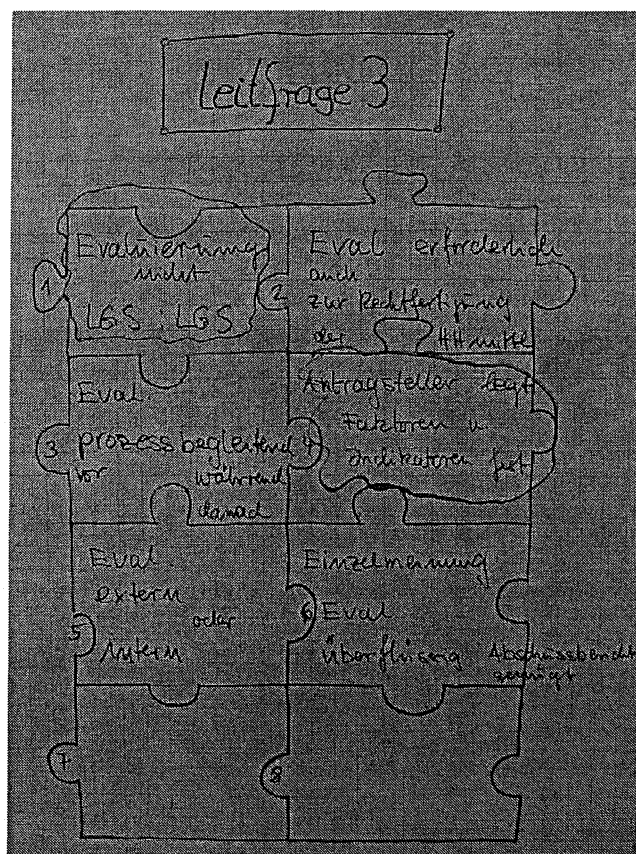 Leitfrage 3
1
Evaluierung
nicht
LGS : LGS
2
Eval erforderlich
auch
zur Rechtfertigung
der HHmittel
3
Eval.
prozessbegleitend
vor während
danach
4
Antragsteller legt
Faktoren u
Indikatoren fest
5
Eval.
extern
oder
intern
6
Einzelmeinung
Eval
überflüssig
Abschlussbericht
genügt
7
8